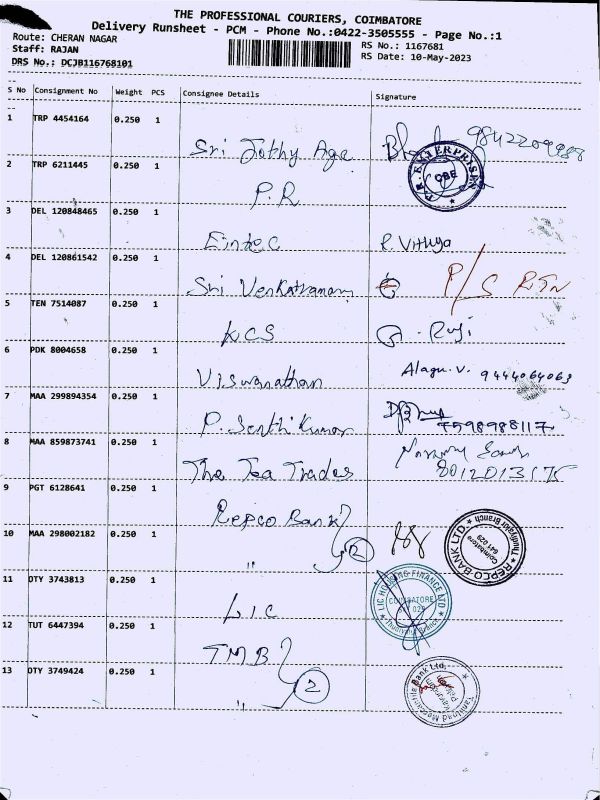 THE PROFESSIONAL COURIERS, COIMBATORE
Delivery Runsheet - PCM - Phone No.:0422-3505555 - Page No.:1
Route: CHERAN NAGAR
RS No.: 1167681
Staff: RAJAN
RS Date: 10-May-2023
DRS No.: DCJB116768101
S No Consignment No Weight PCS Consignee Details Signature
1 TRP 4454164 0.250 1
Sri Jothy Age 9842209988
2 TRP 6211445 0.250 1
P.R ENTERPRISES CBE
3 DEL 120848465 0.250 1
Eintec P. Vithya
4 DEL 120861542 0.250 1
Sri Venkatramana P/S RTN
5 TEN 7514087 0.250 1
KCS Ruji
6 PDK 8004658 0.250 1
Viswanathan Alagu. V. 9444064063
7 MAA 299894354 0.250 1
P. Senthil Kumar 7598988117
8 MAA 859873741 0.250 1
The Tea Trades 8012013175
9 PGT 6128641 0.250 1
Repco Bank
10 MAA 298002182 0.250 1
" 2 REPCO BANK LTD. Thudiyalur Branch Coimbatore 641 029
11 OTY 3743813 0.250 1
LIC LIC HOUSING FINANCE LTD COIMBATORE
12 TUT 6447394 0.250 1
TMB
13 OTY 3749424 0.250 1
" 2 Tamilnad Mercantile Bank Ltd.